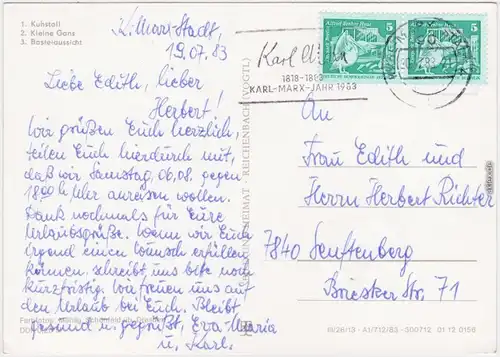 1. Kuhstall
2. Kleine Gans
3. Basteiaussicht
K.-Marx-Stadt,
19.07.83
Liebe Edith, lieber
Herbert!
Wir grüßen Euch herzlich,
teilen Euch hierdurch mit,
daß wir Samstag, 06.08. gegen
18.00 Uhr anreisen wollen.
Dank nochmals für Eure
Urlaubsgrüße. Wenn wir Euch
irgend einen Wunsch erfüllen
können, schreibt uns bitte noch
kurzfristig. Wir freuen uns auf
den Urlaub bei Euch. Bleibt
gesund u. gegrüßt, Eva-Maria
u. Karl.
BILD UND HEIMAT · REICHENBACH (VOGTL)
Karl Marx
1818-1883
KARL-MARX-JAHR 1983
5
5
An
Frau Edith und
Herrn Herbert Richter
7840 Senftenberg
Briesker Str. 71
III/26/13 · A1/712/83 · 500712 01 12 0158